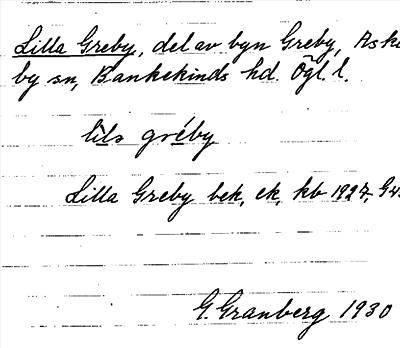 Lilla Greby, del av byn Greby, Aske
by sn, Bankekinds hd. Ögl. l.
lı̀ls gréby
Lilla Greby bek, ek, kb 1927, G43
G. Granberg 1930